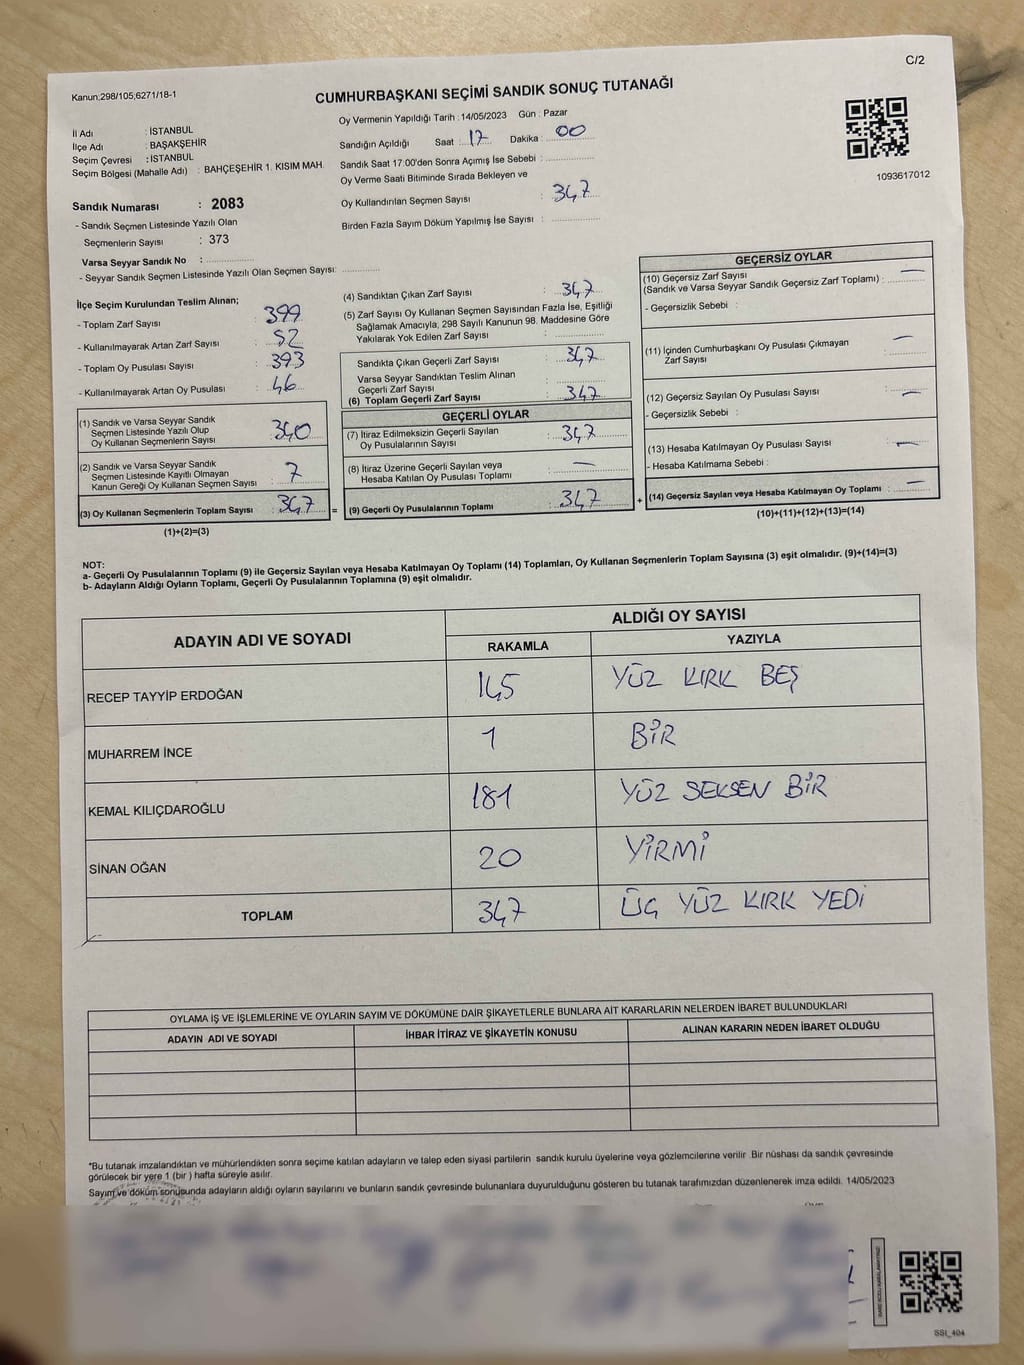 C/2
Kanun;298/105;6271/18-1
CUMHURBAŞKANI SEÇİMİ SANDIK SONUÇ TUTANAĞI
İl Adı : İSTANBUL
İlçe Adı : BAŞAKŞEHİR
Seçim Çevresi : İSTANBUL
Seçim Bölgesi (Mahalle Adı) : BAHÇEŞEHİR 1. KISIM MAH.
Oy Vermenin Yapıldığı Tarih : 14/05/2023 Gün : Pazar
Sandığın Açıldığı Saat : 17 Dakika : 00
Sandık Saat 17:00'den Sonra Açımış İse Sebebi :
Oy Verme Saati Bitiminde Sırada Bekleyen ve
Oy Kullandırılan Seçmen Sayısı : 347
Birden Fazla Sayım Döküm Yapılmış İse Sayısı :
1093617012
Sandık Numarası : 2083
- Sandık Seçmen Listesinde Yazılı Olan
Seçmenlerin Sayısı : 373
Varsa Seyyar Sandık No :
- Seyyar Sandık Seçmen Listesinde Yazılı Olan Seçmen Sayısı:
İlçe Seçim Kurulundan Teslim Alınan;
- Toplam Zarf Sayısı : 399
- Kullanılmayarak Artan Zarf Sayısı : 52
- Toplam Oy Pusulası Sayısı : 393
- Kullanılmayarak Artan Oy Pusulası : 46
(1) Sandık ve Varsa Seyyar Sandık
Seçmen Listesinde Yazılı Olup
Oy Kullanan Seçmenlerin Sayısı : 340
(2) Sandık ve Varsa Seyyar Sandık
Seçmen Listesinde Kayıtlı Olmayan
Kanun Gereği Oy Kullanan Seçmen Sayısı : 7
(3) Oy Kullanan Seçmenlerin Toplam Sayısı : 347 =
(1)+(2)=(3)
(4) Sandıktan Çıkan Zarf Sayısı : 347
(5) Zarf Sayısı Oy Kullanan Seçmen Sayısından Fazla İse, Eşitliği
Sağlamak Amacıyla, 298 Sayılı Kanunun 98. Maddesine Göre
Yakılarak Yok Edilen Zarf Sayısı :
Sandıkta Çıkan Geçerli Zarf Sayısı : 347
Varsa Seyyar Sandıktan Teslim Alınan
Geçerli Zarf Sayısı :
(6) Toplam Geçerli Zarf Sayısı : 347
GEÇERLİ OYLAR
(7) İtiraz Edilmeksizin Geçerli Sayılan
Oy Pusulalarının Sayısı : 347
(8) İtiraz Üzerine Geçerli Sayılan veya
Hesaba Katılan Oy Pusulası Toplamı : —
(9) Geçerli Oy Pusulalarının Toplamı : 347 +
GEÇERSİZ OYLAR
(10) Geçersiz Zarf Sayısı
(Sandık ve Varsa Seyyar Sandık Geçersiz Zarf Toplamı) : —
- Geçersizlik Sebebi :
(11) İçinden Cumhurbaşkanı Oy Pusulası Çıkmayan
Zarf Sayısı : —
(12) Geçersiz Sayılan Oy Pusulası Sayısı : —
- Geçersizlik Sebebi :
(13) Hesaba Katılmayan Oy Pusulası Sayısı : —
- Hesaba Katılmama Sebebi :
(14) Geçersiz Sayılan veya Hesaba Katılmayan Oy Toplamı : —
(10)+(11)+(12)+(13)=(14)
NOT:
a- Geçerli Oy Pusulalarının Toplamı (9) ile Geçersiz Sayılan veya Hesaba Katılmayan Oy Toplamı (14) Toplamları, Oy Kullanan Seçmenlerin Toplam Sayısına (3) eşit olmalıdır. (9)+(14)=(3)
b- Adayların Aldığı Oyların Toplamı, Geçerli Oy Pusulalarının Toplamına (9) eşit olmalıdır.
ADAYIN ADI VE SOYADI
ALDIĞI OY SAYISI
RAKAMLA YAZIYLA
RECEP TAYYİP ERDOĞAN 145 YÜZ KIRK BEŞ
MUHARREM İNCE 1 BİR
KEMAL KILIÇDAROĞLU 181 YÜZ SEKSEN BİR
SİNAN OĞAN 20 YİRMİ
TOPLAM 347 ÜÇ YÜZ KIRK YEDİ
OYLAMA İŞ VE İŞLEMLERİNE VE OYLARIN SAYIM VE DÖKÜMÜNE DAİR ŞİKAYETLERLE BUNLARA AİT KARARLARIN NELERDEN İBARET BULUNDUKLARI
ADAYIN ADI VE SOYADI İHBAR İTİRAZ VE ŞİKAYETİN KONUSU ALINAN KARARIN NEDEN İBARET OLDUĞU
*Bu tutanak imzalandıktan ve mühürlendikten sonra seçime katılan adayların ve talep eden siyasi partilerin sandık kurulu üyelerine veya gözlemcilerine verilir .Bir nüshası da sandık çevresinde
görülecek bir yere 1 (bir ) hafta süreyle asılır.
Sayım ve döküm sonusunda adayların aldığı oyların sayılarını ve bunların sandık çevresinde bulunanlara duyurulduğunu gösteren bu tutanak tarafımızdan düzenlenerek imza edildi. 14/05/2023
SSI_404